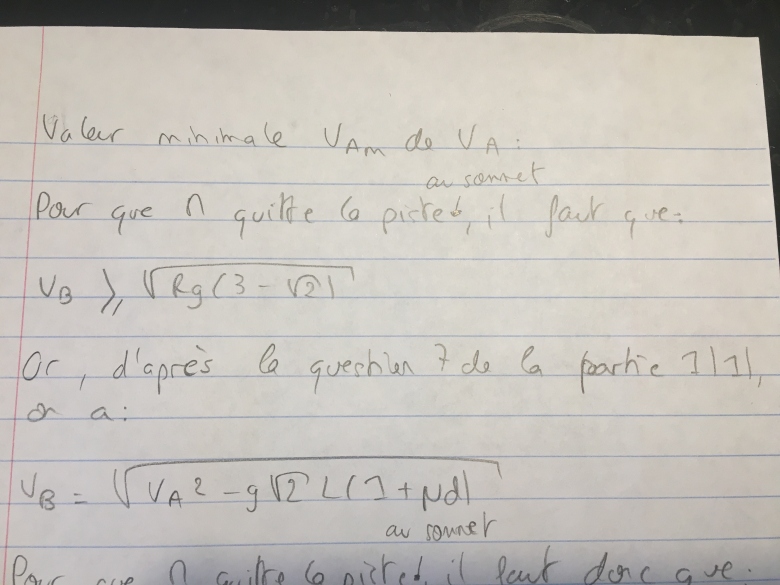 Valeur minimale V_Am de V_A :
au sommet
Pour que M quitte la piste, il faut que :
V_B ⩾ √(Rg(3 - √2))
Or, d'après la question 7 de la partie 1)1),
on a :
V_B = √(V_A² - g√2 L(1 + μd))
au sommet
Pour que M quitte la piste, il faut donc que :